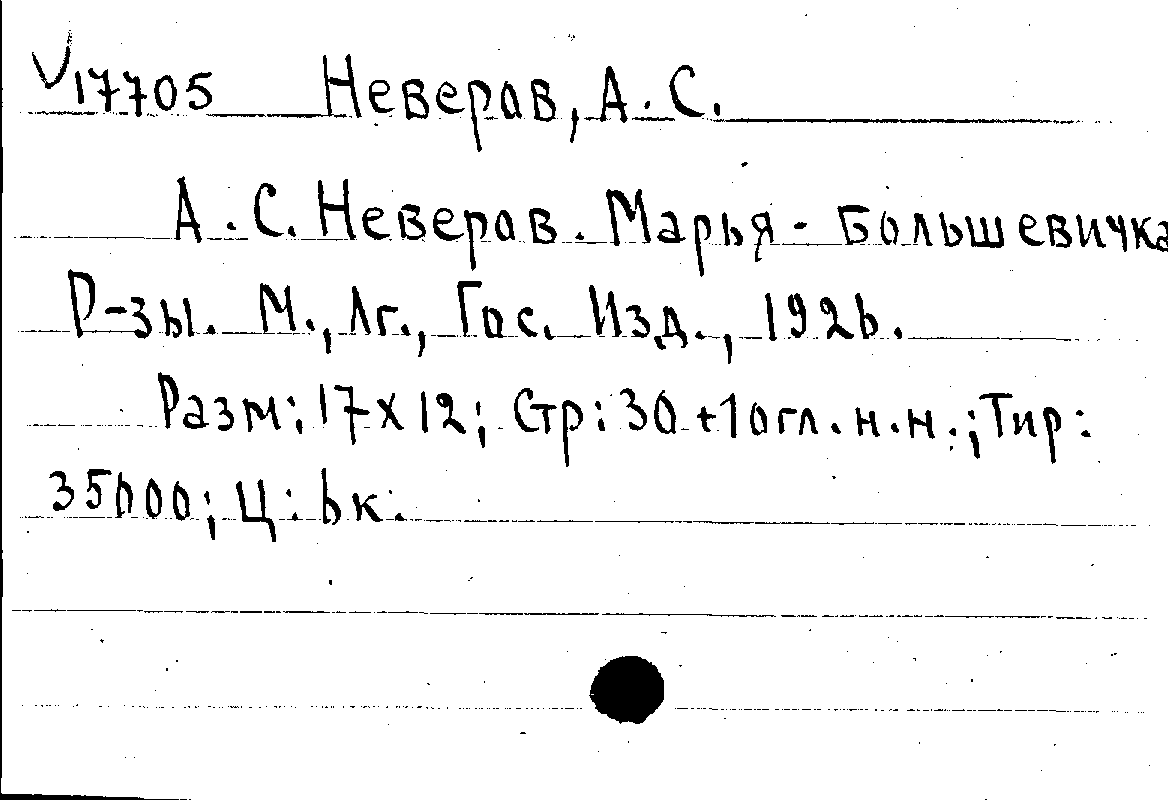 V 17705 Неверов, А. С.
А. С. Неверов. Марья - Большевичка
Р-зы. М., Лг., Гос. Изд., 1926.
Разм: 17 x 12; Стр: 30 + 1 огл. н. н.; Тир:
35000; Ц: 6 к.